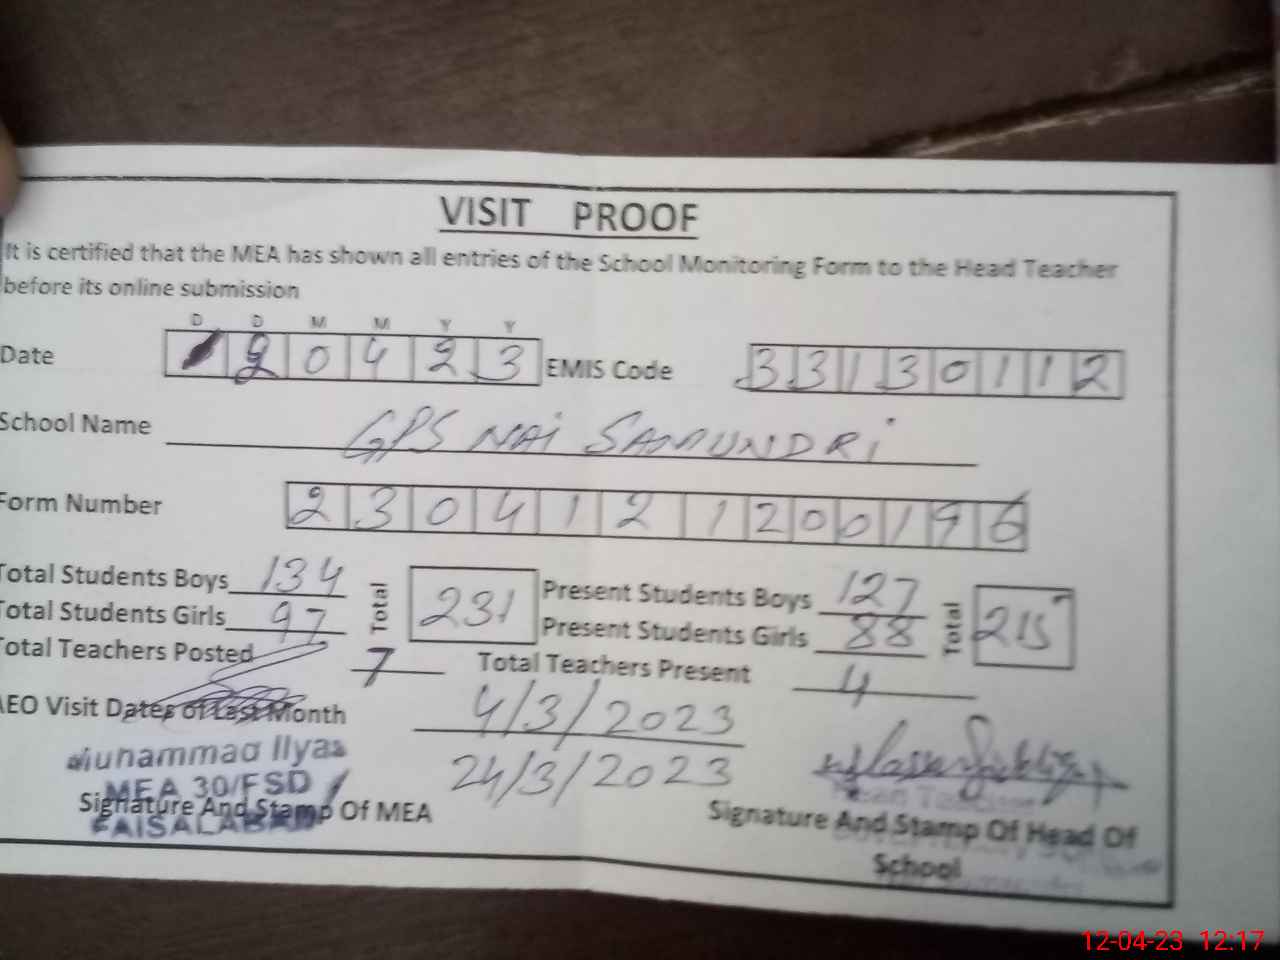 VISIT PROOF
It is certified that the MEA has shown all entries of the School Monitoring Form to the Head Teacher
before its online submission
D D M M Y Y
Date 1 2 0 4 2 3 EMIS Code 3 3 1 3 0 1 1 2
School Name GPS NAI SAMUNDRI
Form Number 2 3 0 4 1 2 1 2 0 0 1 9 6
Total Students Boys 134 Total 231 Present Students Boys 127 Total 215
Total Students Girls 97 Present Students Girls 88
Total Teachers Posted 7 Total Teachers Present 4
AEO Visit Dates of Last Month 4/3/2023
24/3/2023
Muhammad Ilyas
MEA 30/FSD
FAISALABAD
Signature And Stamp Of MEA
Head Teacher
Signature And Stamp Of Head Of
School
12-04-23 12:17